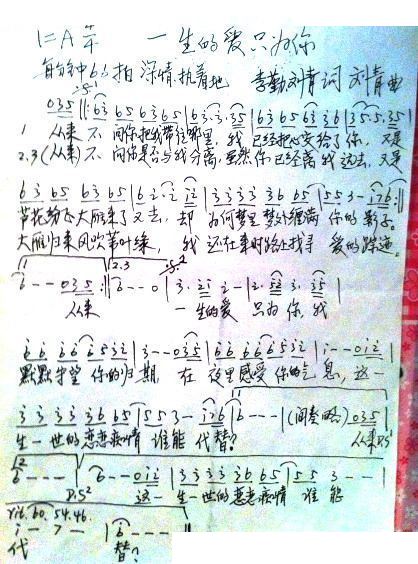 1=A 4/4 一生的爱只为你
每分钟66拍 深情执着地 李勤 刘青词 刘青曲
035 ‖: 63 65 63 65 | 63·3·35 | 63 65 63 36 | 35·5·35 |
1 从来 不 问你把我带往哪里, 我 已经把心交给了你, 又是
2.3 (从来) 不 问你是否与我分离, 虽然你已经离我远去, 又是
63 65 63 65 | 62·2 12 | 3333 36 65 | 553 - 176 :‖
大雁归来风吹草叶绿, 我 还在来时路上找寻 爱的踪迹。
1. 2.3
6 - - 035 :‖ 6 - - 0 | 3· 21 2 - | 2· 52 3· 35 |
从来 一生的爱 只为你, 我
66 66 6532 | 3 - - 035 | 66 66 6535 | 1 - - 012 |
默默守望 你的归期, 在 夜里感受 你的气息, 这一
333 36 65 | 553 - 176 | 6 - - - | (间奏略) 035 |
生一世的恋恋痴情 谁能 代替? 从来 D.S
6 - - - | 6 - - 012 | 3333 36 65 | 55 3 - - |
D.S² 这一 生一世的恋恋痴情 谁 能
rit. 60. 54. 46.
1 - 7 - | 6 - - - ‖
代 替?